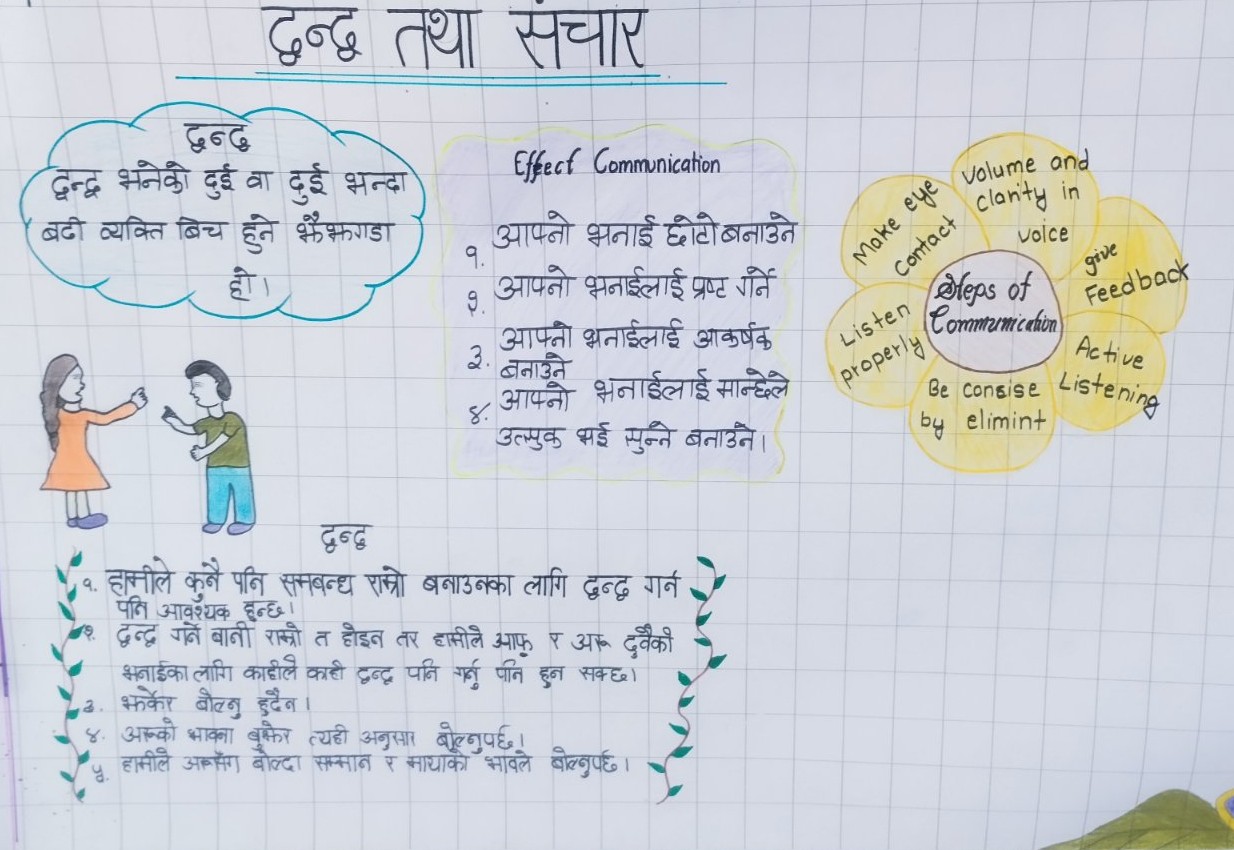 द्वन्द्व तथा संचार
द्वन्द्व
द्वन्द्व भनेको दुई वा दुई भन्दा
बढी व्यक्ति बिच हुने झैझगडा
हो।
Effect Communication
१. आफ्नो भनाई छोटो बनाउने
२. आफ्नो भनाईलाई प्रष्ट गर्ने
३. आफ्नो भनाईलाई आकर्षक
बनाउने
४. आफ्नो भनाईलाई मान्छेले
उत्सुक भई सुन्ने बनाउने।
Steps of
Communication
Volume and
clarity in
voice
give
Feedback
Active
Listening
Be consise
by elimint
Listen
properly
Make eye
contact
द्वन्द्व
१. हामीले कुनै पनि समबन्ध राम्रो बनाउनका लागि द्वन्द्व गर्न
पनि आवश्यक हुन्छ।
२. द्वन्द्व गर्ने बानी राम्रो त होइन तर हामीले आफू र अरू दुवैको
भनाईका लागि काहीले काही द्वन्द्व पनि गर्नु पनि हुन सक्छ।
३. झर्केर बोल्नु हुदैन।
४. अरूको भावना बुझेर त्यही अनुसार बोल्नुपर्छ।
५. हामीले अरूसँग बोल्दा सम्मान र मायाको भावले बोल्नुपर्छ।